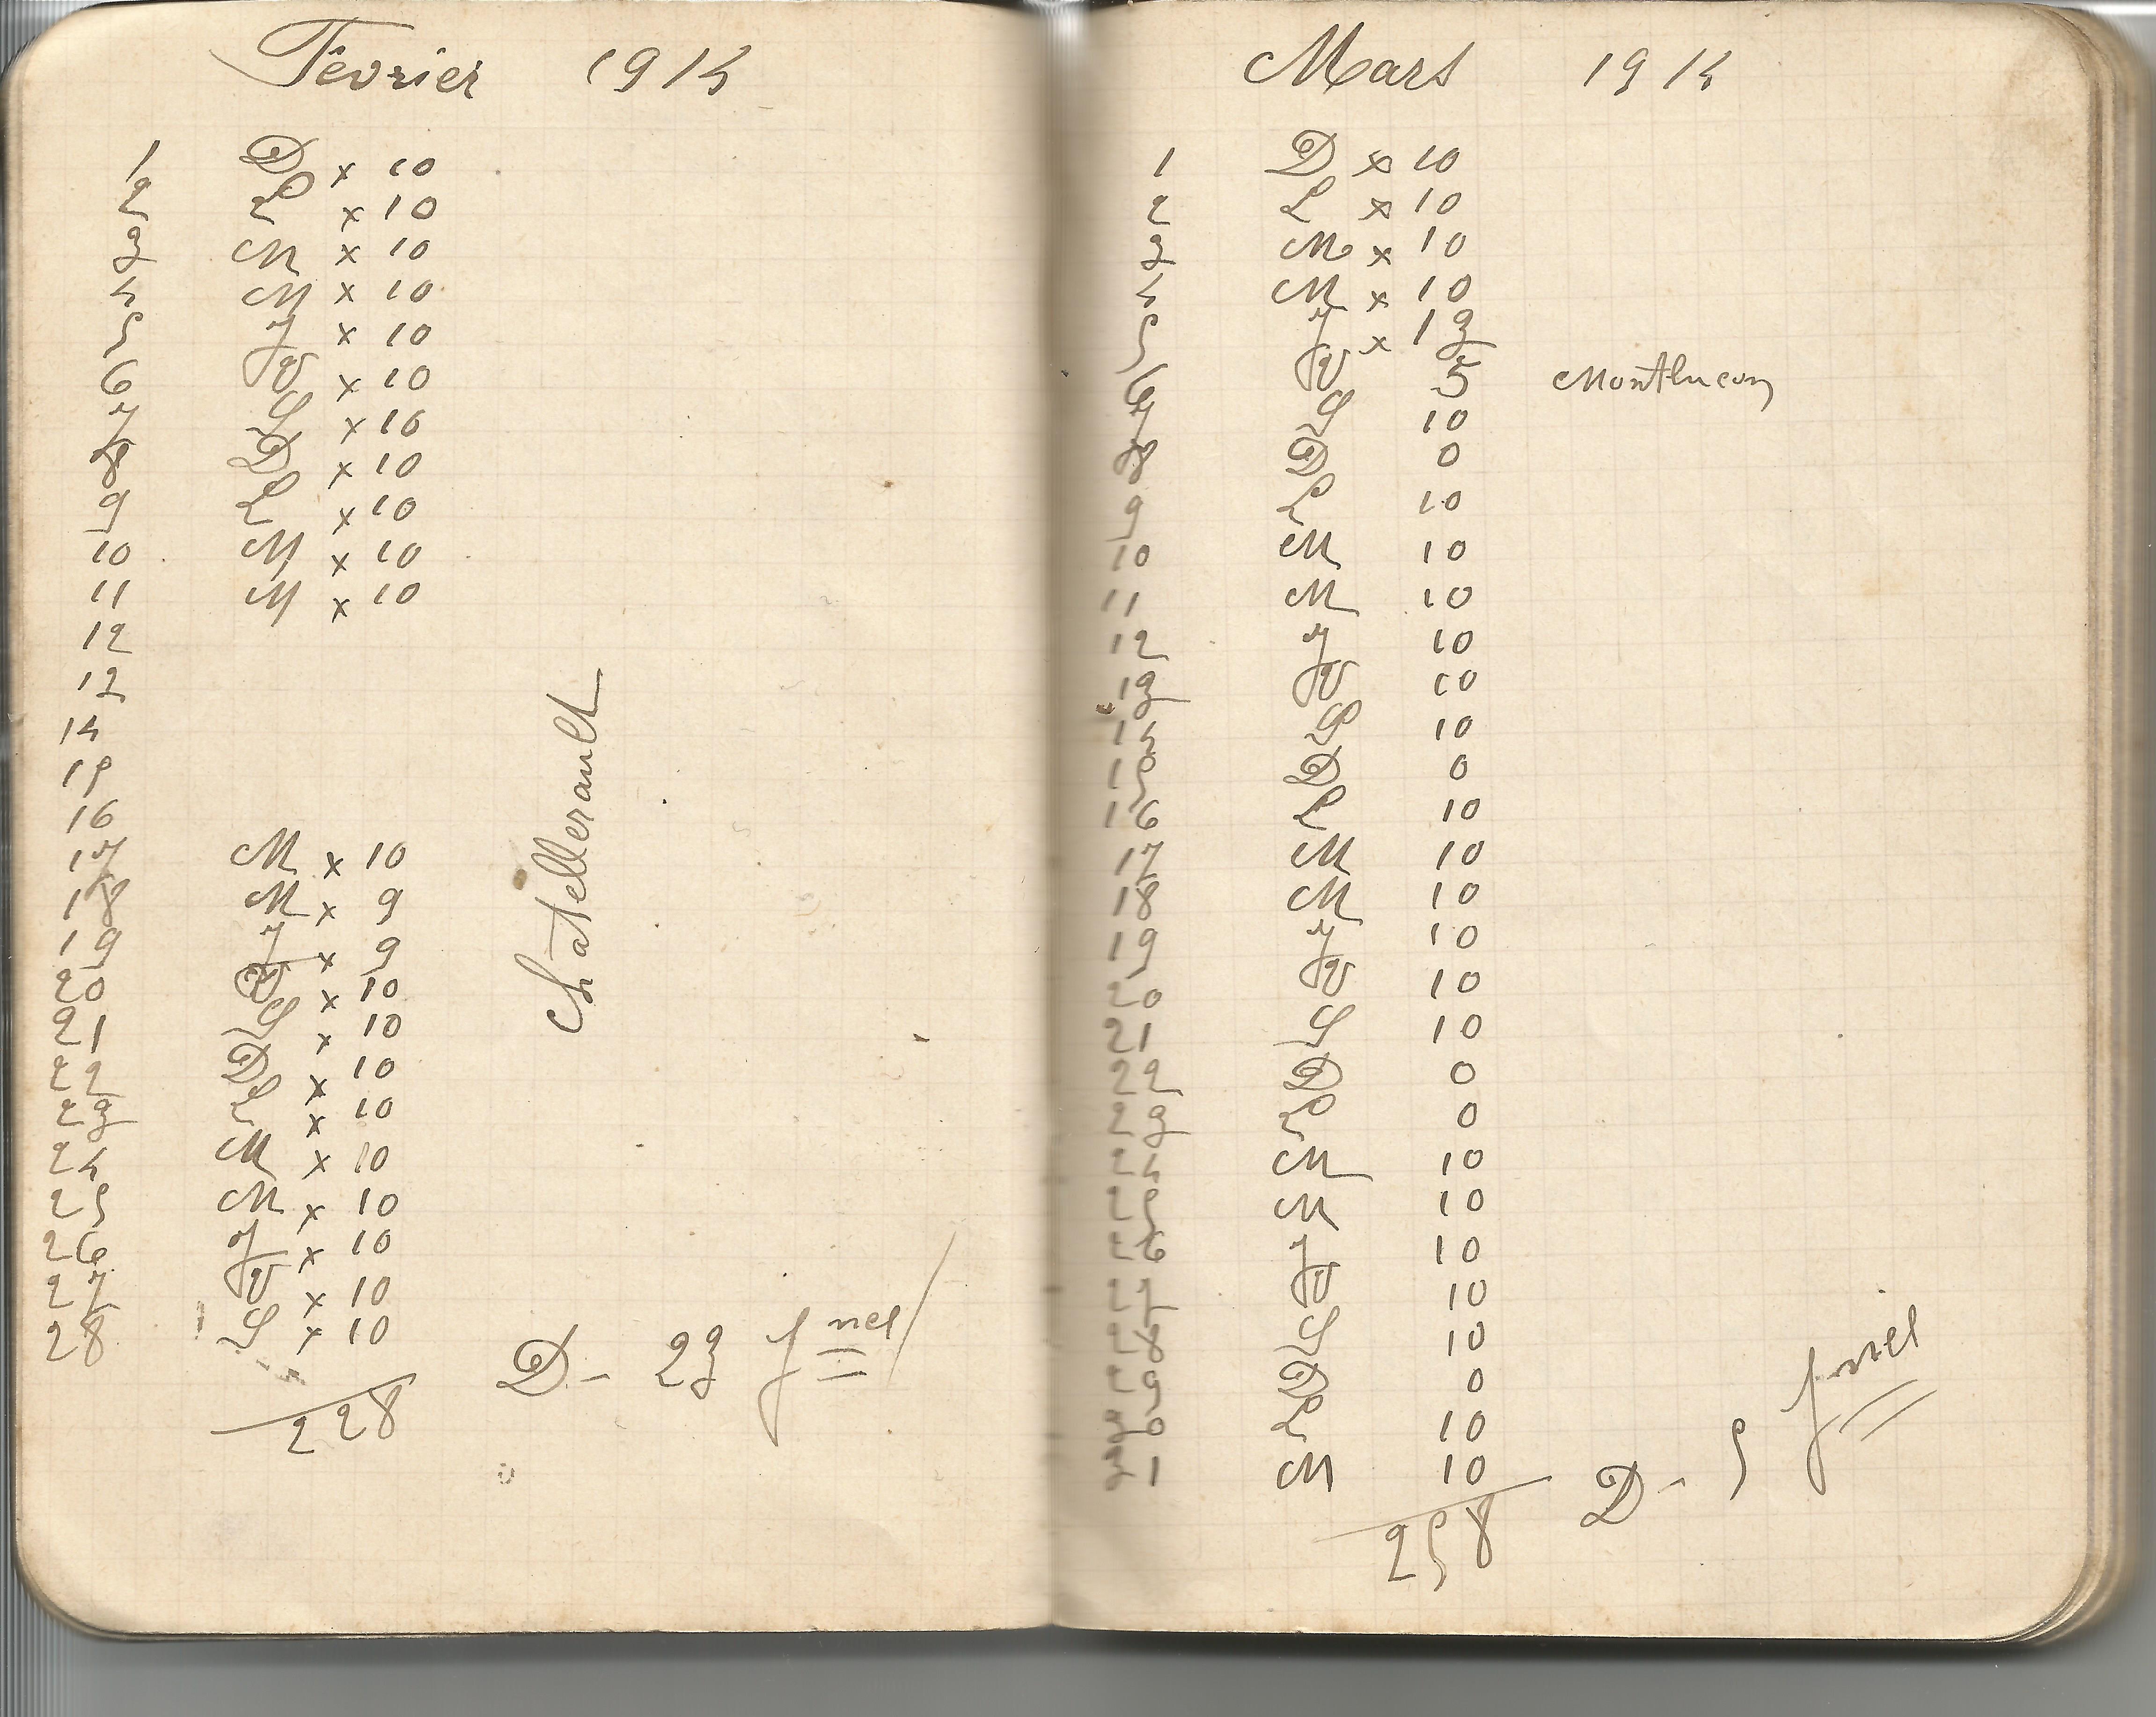 Février 1914
1 D x 10
2 L x 10
3 M x 10
4 M x 10
5 J x 10
6 V x 10
7 S x 10
8 D x 10
9 L x 10
10 M x 10
11 M x 10
12
12
14
15
16
17 M x 10
18 M x 9
19 J x 9
20 V x 10
21 S x 10
22 D x 10
23 L x 10
24 M x 10
25 M x 10
26 J x 10
27 V x 10
28 S x 10
Chatellerault
228 D - 23 Jnel
Mars 1914
1 D x 10
2 L x 10
3 M x 10
4 M x 10
5 J x 13
6 V 5 Montlucon
7 S 10
8 D 0
9 L 10
10 M 10
11 M 10
12 J 10
13 V 10
14 S 10
15 D 0
16 L 10
17 M 10
18 M 10
19 J 10
20 V 10
21 S 10
22 D 0
23 L 0
24 M 10
25 M 10
26 J 10
27 V 10
28 S 10
29 D 0
30 L 10
31 M 10
258 D - 5 Jnel